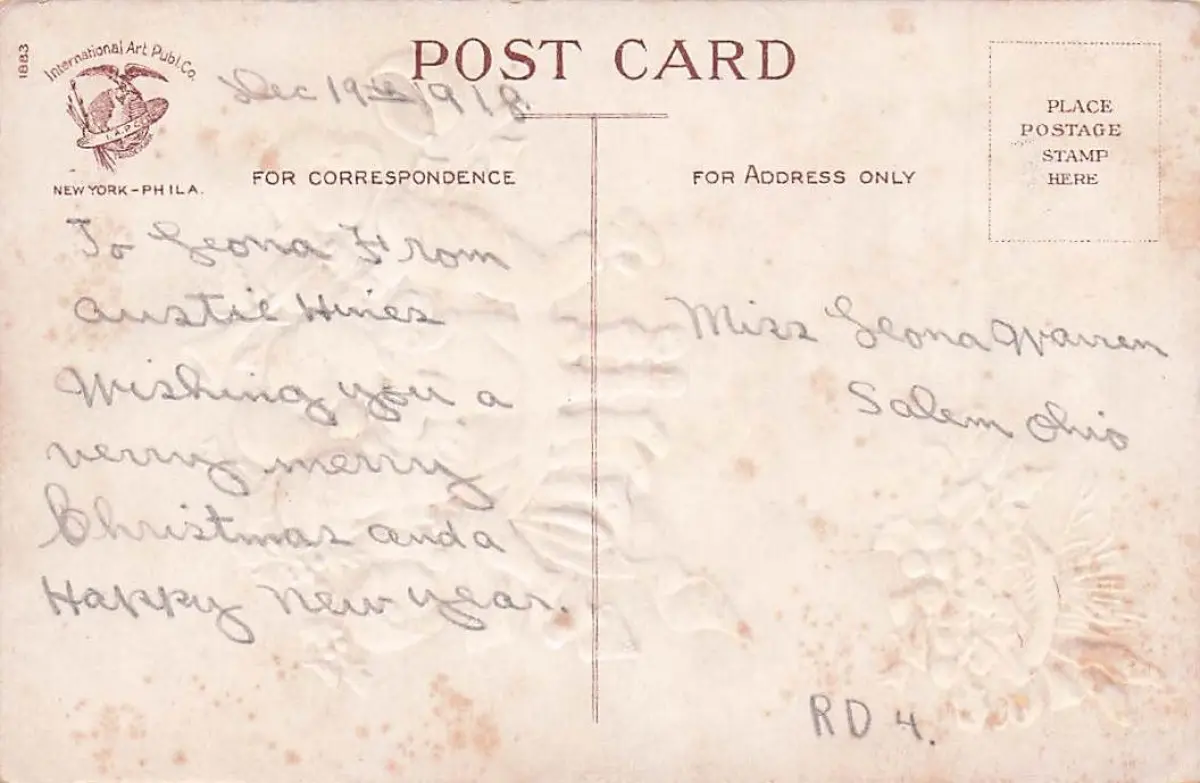 1883
International Art Publ. Co.
I.A.P.
NEW YORK-PHILA.
POST CARD
Dec 19 1918
FOR CORRESPONDENCE
FOR ADDRESS ONLY
PLACE
POSTAGE
STAMP
HERE
To Leona From
Austie Hines
Wishing you a
verry merry
Christmas and a
Happy New year.
Miss Leona Warren
Salem Ohio
RD 4.